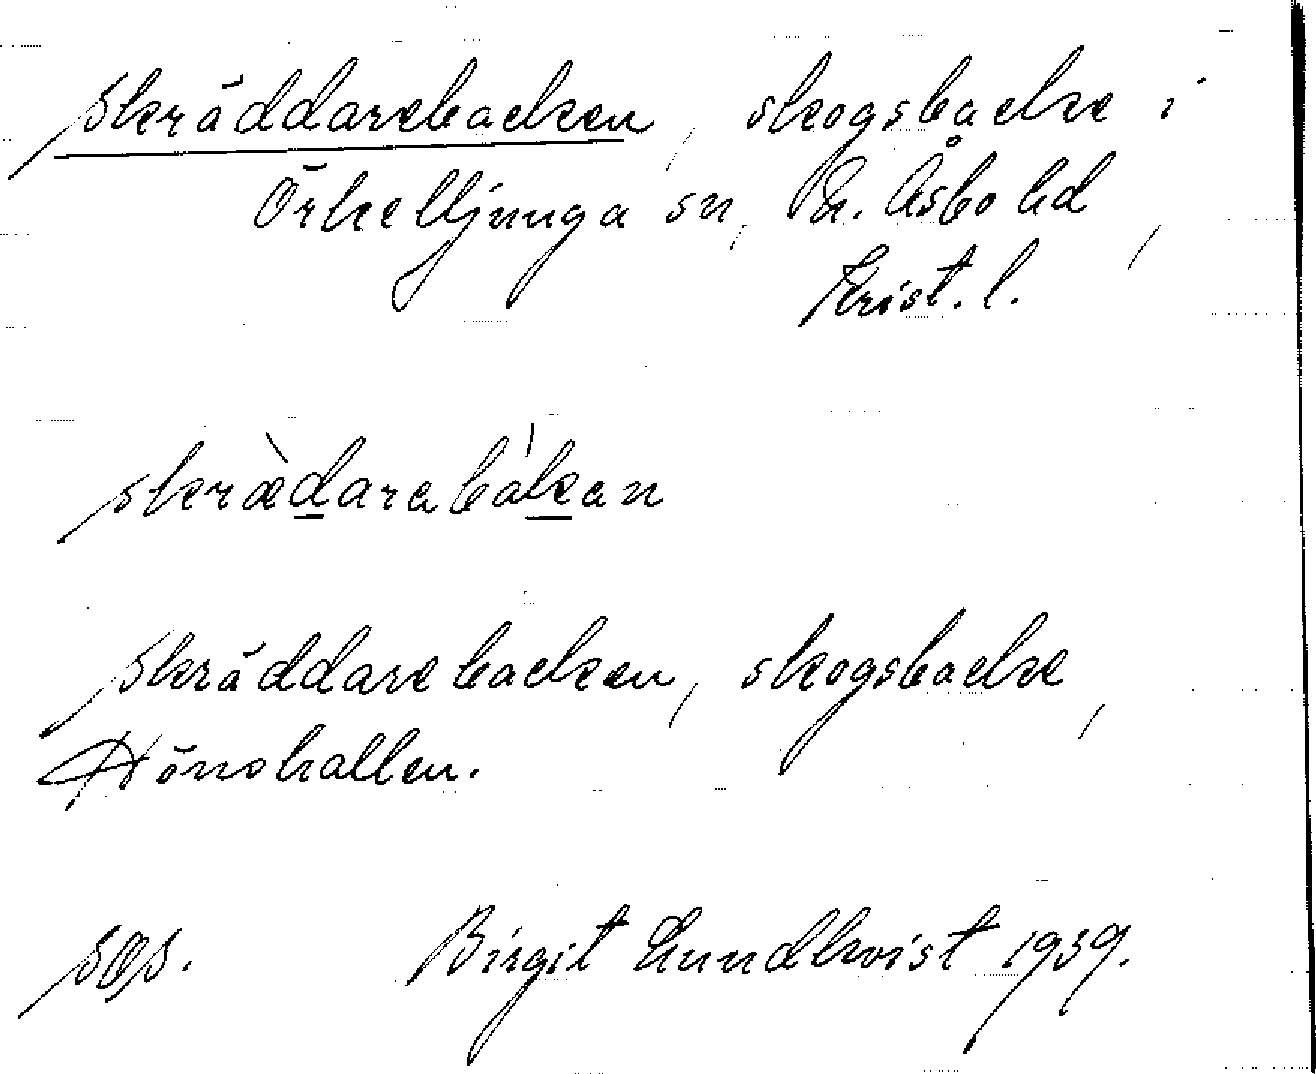 Skräddarebacken, skogsbacke i
Örkelljunga sn, N. Åsbo hd,
Krist. l.
skrædarabakan
Skräddarebacken, skogsbacke,
Hönshallen.
Birgit Lundkvist 1939.